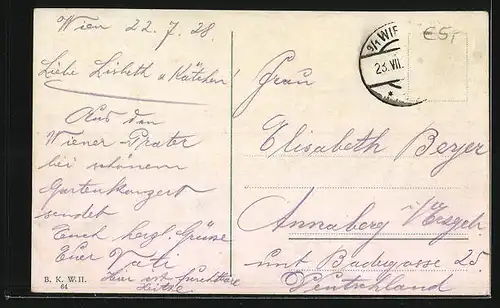 Wien 22.7.28.
Liebe Lisbeth u Kätchen!
Aus dem
Wiener Prater
bei schönem
Gartenkonzert
sendet
Euch herzl. Grüsse
Euer Vati
Hier ist furchtbare
Hitze
B. K. W. II.
64
9/1 WIE
23. VII.
*
Frau
Elisabeth Beyer
Annaberg i/Erzgeb
unt Badergasse 25.
Deutschland